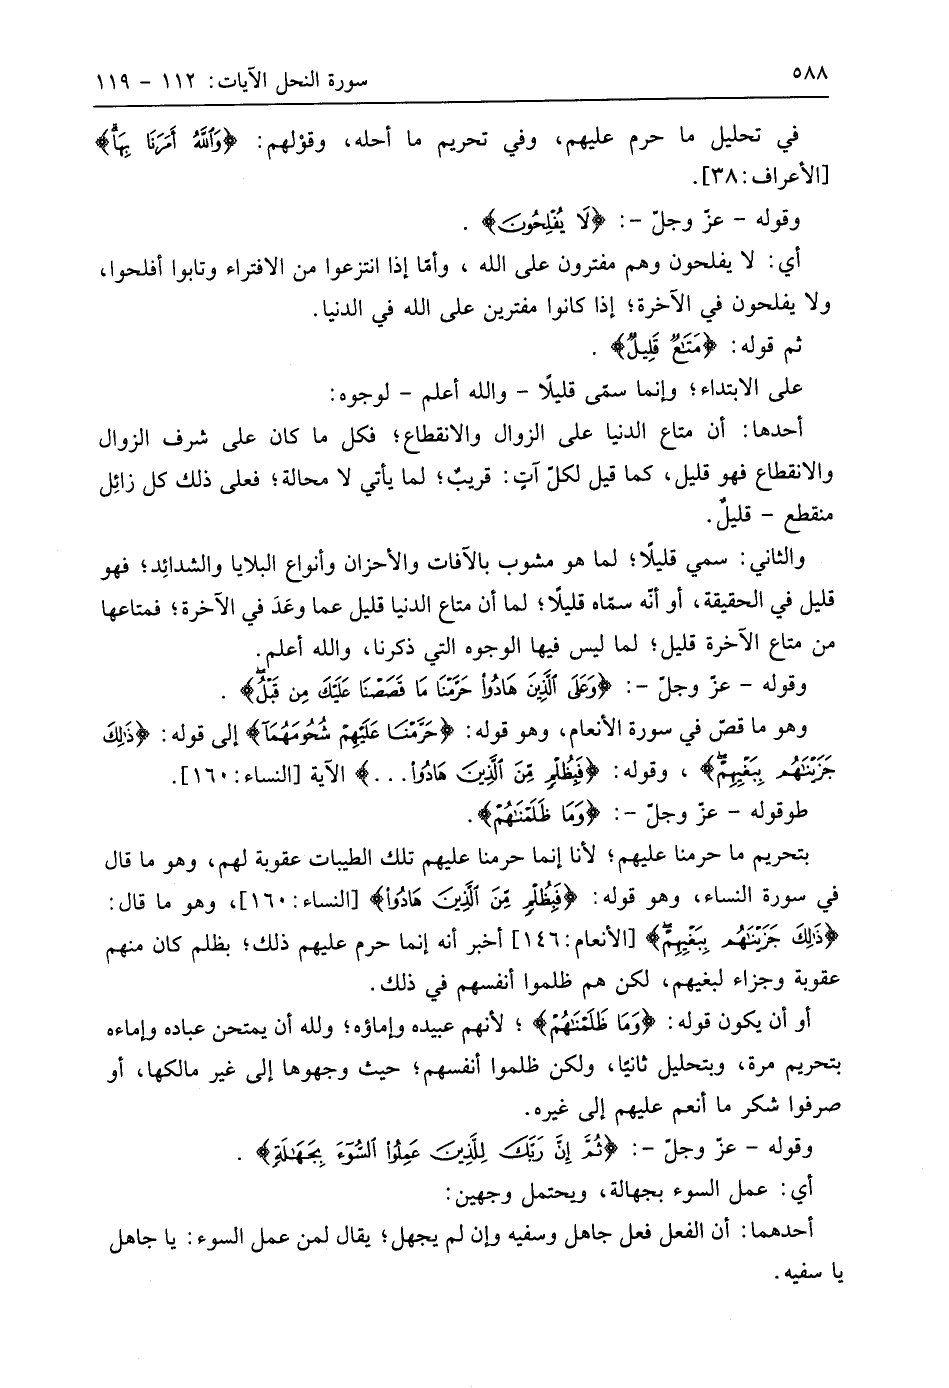 ٥٨٨
سورة النحل الآيات: ١١٢ - ١١٩
في تحليل ما حرم عليهم، وفي تحريم ما أحله، وقوْلهم: ﴿وَٱللَّهُ أَمَرَنَا بِهَاۗ﴾
[الأعراف:٣٨].
وقوله - عزّ وجلّ -: ﴿لَا يُفْلِحُونَ﴾ .
أي: لا يفلحون وهم مفترون على الله ، وأمّا إذا انتزعوا من الافتراء وتابوا أفلحوا،
ولا يفلحون في الآخرة؛ إذا كانوا مفترين على الله في الدنيا.
ثم قوله: ﴿مَتَٰعٌ قَلِيلٌ﴾ .
على الابتداء؛ وإنما سمّى قليلًا - والله أعلم - لوجوه:
أحدها: أن متاع الدنيا على الزوال والانقطاع؛ فكل ما كان على شرف الزوال
والانقطاع فهو قليل، كما قيل لكلّ آتٍ: قريبٌ؛ لما يأتي لا محالة؛ فعلى ذلك كل زائِل
منقطع - قليلٌ.
والثاني: سمي قليلًا؛ لما هو مشوب بالآفات والأحزان وأنواع البلايا والشدائِد؛ فهو
قليل في الحقيقة، أو أنّه سمّاه قليلًا؛ لما أن متاع الدنيا قليل عما وعَدَ في الآخرة؛ فمتاعها
من متاع الآخرة قليل؛ لما ليس فيها الوجوه التي ذكرنا، والله أعلم.
وقوله - عزّ وجلّ -: ﴿وَعَلَى ٱلَّذِينَ هَادُوا۟ حَرَّمْنَا مَا قَصَصْنَا عَلَيْكَ مِن قَبْلُۖ﴾ .
وهو ما قصّ في سورة الأنعام، وهو قوله: ﴿حَرَّمْنَا عَلَيْهِمْ شُحُومَهُمَآ﴾ إلى قوله: ﴿ذَٰلِكَ
جَزَيْنَٰهُم بِبَغْيِهِمْۖ﴾ ، وقوله: ﴿فَبِظُلْمٍ مِّنَ ٱلَّذِينَ هَادُوا۟...﴾ الآية [النساء:١٦٠].
طوقوله - عزّ وجلّ -: ﴿وَمَا ظَلَمْنَٰهُمْ﴾.
بتحريم ما حرمنا عليهم؛ لأنا إنما حرمنا عليهم تلك الطيبات عقوبة لهم، وهو ما قال
في سورة النساء، وهو قوله: ﴿فَبِظُلْمٍ مِّنَ ٱلَّذِينَ هَادُوا۟﴾ [النساء:١٦٠]، وهو ما قال:
﴿ذَٰلِكَ جَزَيْنَٰهُم بِبَغْيِهِمْۖ﴾ [الأنعام:١٤٦] أخبر أنه إنما حرم عليهم ذلك؛ بظلم كان منهم
عقوبة وجزاء لبغيهم، لكن هم ظلموا أنفسهم في ذلك.
أو أن يكون قوله: ﴿وَمَا ظَلَمْنَٰهُمْ﴾ ؛ لأنهم عبيده وإماؤه؛ ولله أن يمتحن عباده وإماءه
بتحريم مرة، وبتحليل ثانيًا، ولكن ظلموا أنفسهم؛ حيث وجهوها إلى غير مالكها، أو
صرفوا شكر ما أنعم عليهم إلى غيره.
وقوله - عزّ وجلّ -: ﴿ثُمَّ إِنَّ رَبَّكَ لِلَّذِينَ عَمِلُوا۟ ٱلسُّوٓءَ بِجَهَٰلَةٍ﴾ .
أي: عمل السوء بجهالة، ويحتمل وجهين:
أحدهما: أن الفعل فعل جاهل وسفيه وإن لم يجهل؛ يقال لمن عمل السوء: يا جاهل
يا سفيه.